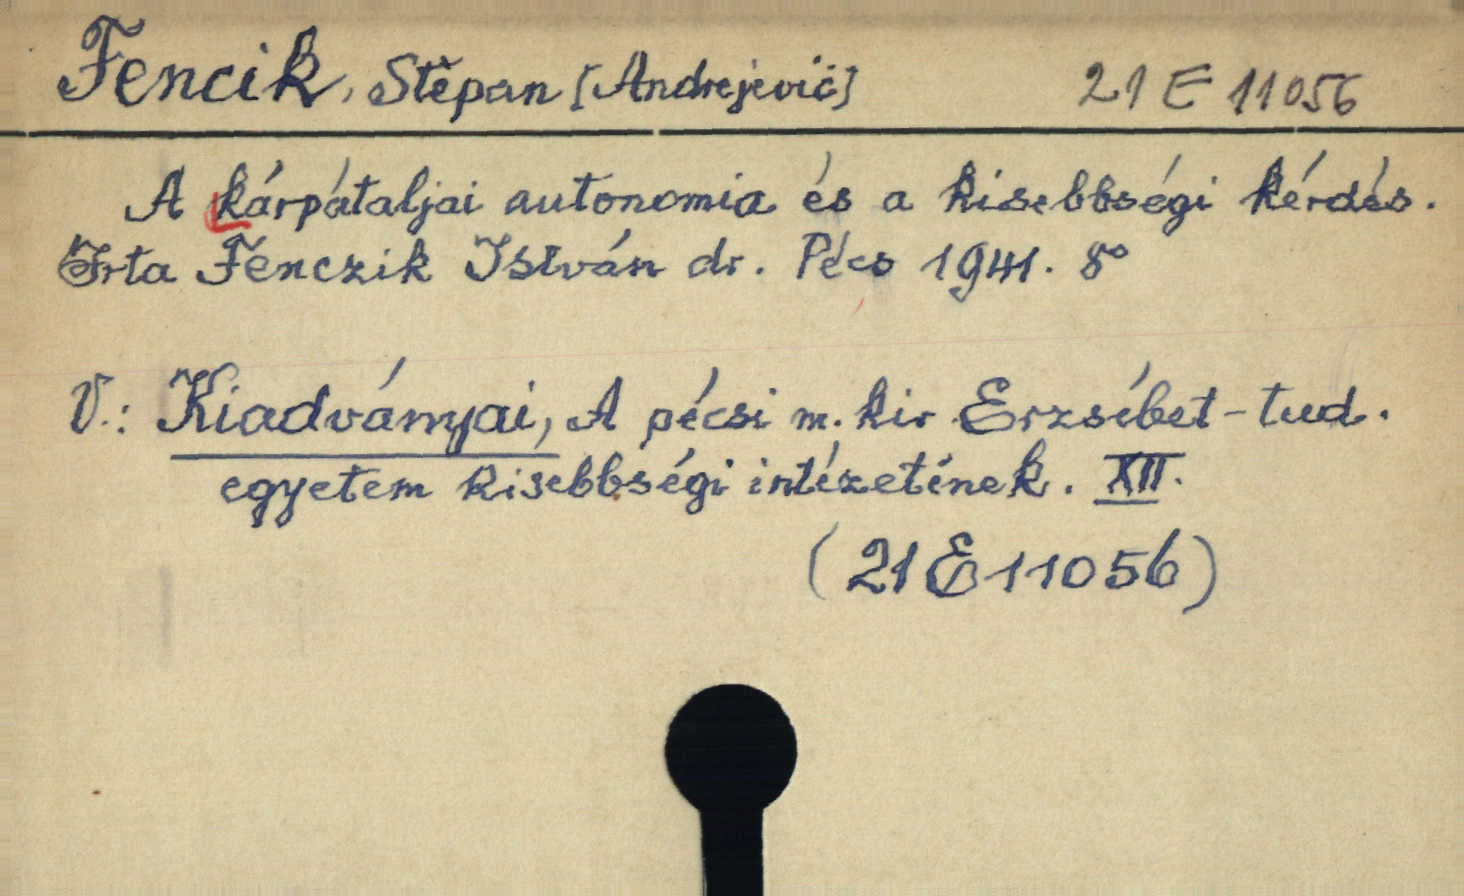 Fencik, Stěpan [Andrejevič] 21 E 11056
A kárpátaljai autonomia és a kisebbségi kérdés.
Irta Fenczik István dr. Pécs 1941. 8°
V.: Kiadványai, A pécsi m. kir Erzsébet-tud.
egyetem kisebbségi intézetének. XII.
(21 E 11056)